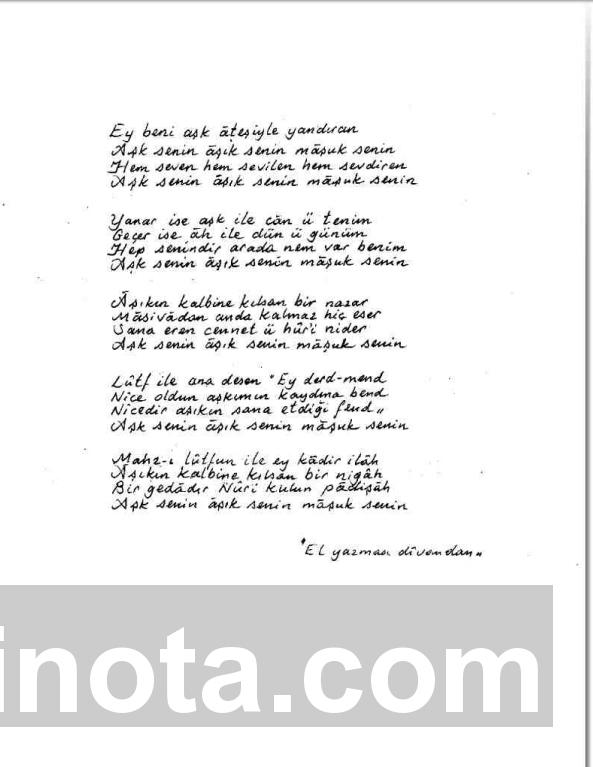 Ey beni aşk âteşiyle yandıran
Aşk senin âşık senin mâşuk senin
Hem seven hem sevilen hem sevdiren
Aşk senin âşık senin mâşuk senin
Yanar ise aşk ile cân ü tenim
Geçer ise âh ile dün ü günüm
Hep senindir arada nem var benim
Aşk senin âşık senin mâşuk senin
Âşıkın kalbine kılsan bir nazar
Mâsivâdan anda kalmaz hiç eser
Sana eren cennet ü hûr'i nider
Aşk senin âşık senin mâşuk senin
Lûtf ile ana desen "Ey derd-mend
Nice oldun aşkımın kaydına bend
Nicedir aşıkın sana etdiği fend"
Aşk senin âşık senin mâşuk senin
Mahz-ı lûtfun ile ey kâdir ilâh
Aşıkın kalbine kılsan bir nigâh
Bir gedâdır Nûri kulun pâdişâh
Aşk senin âşık senin mâşuk senin
"El yazması dîvandan"
inota.com